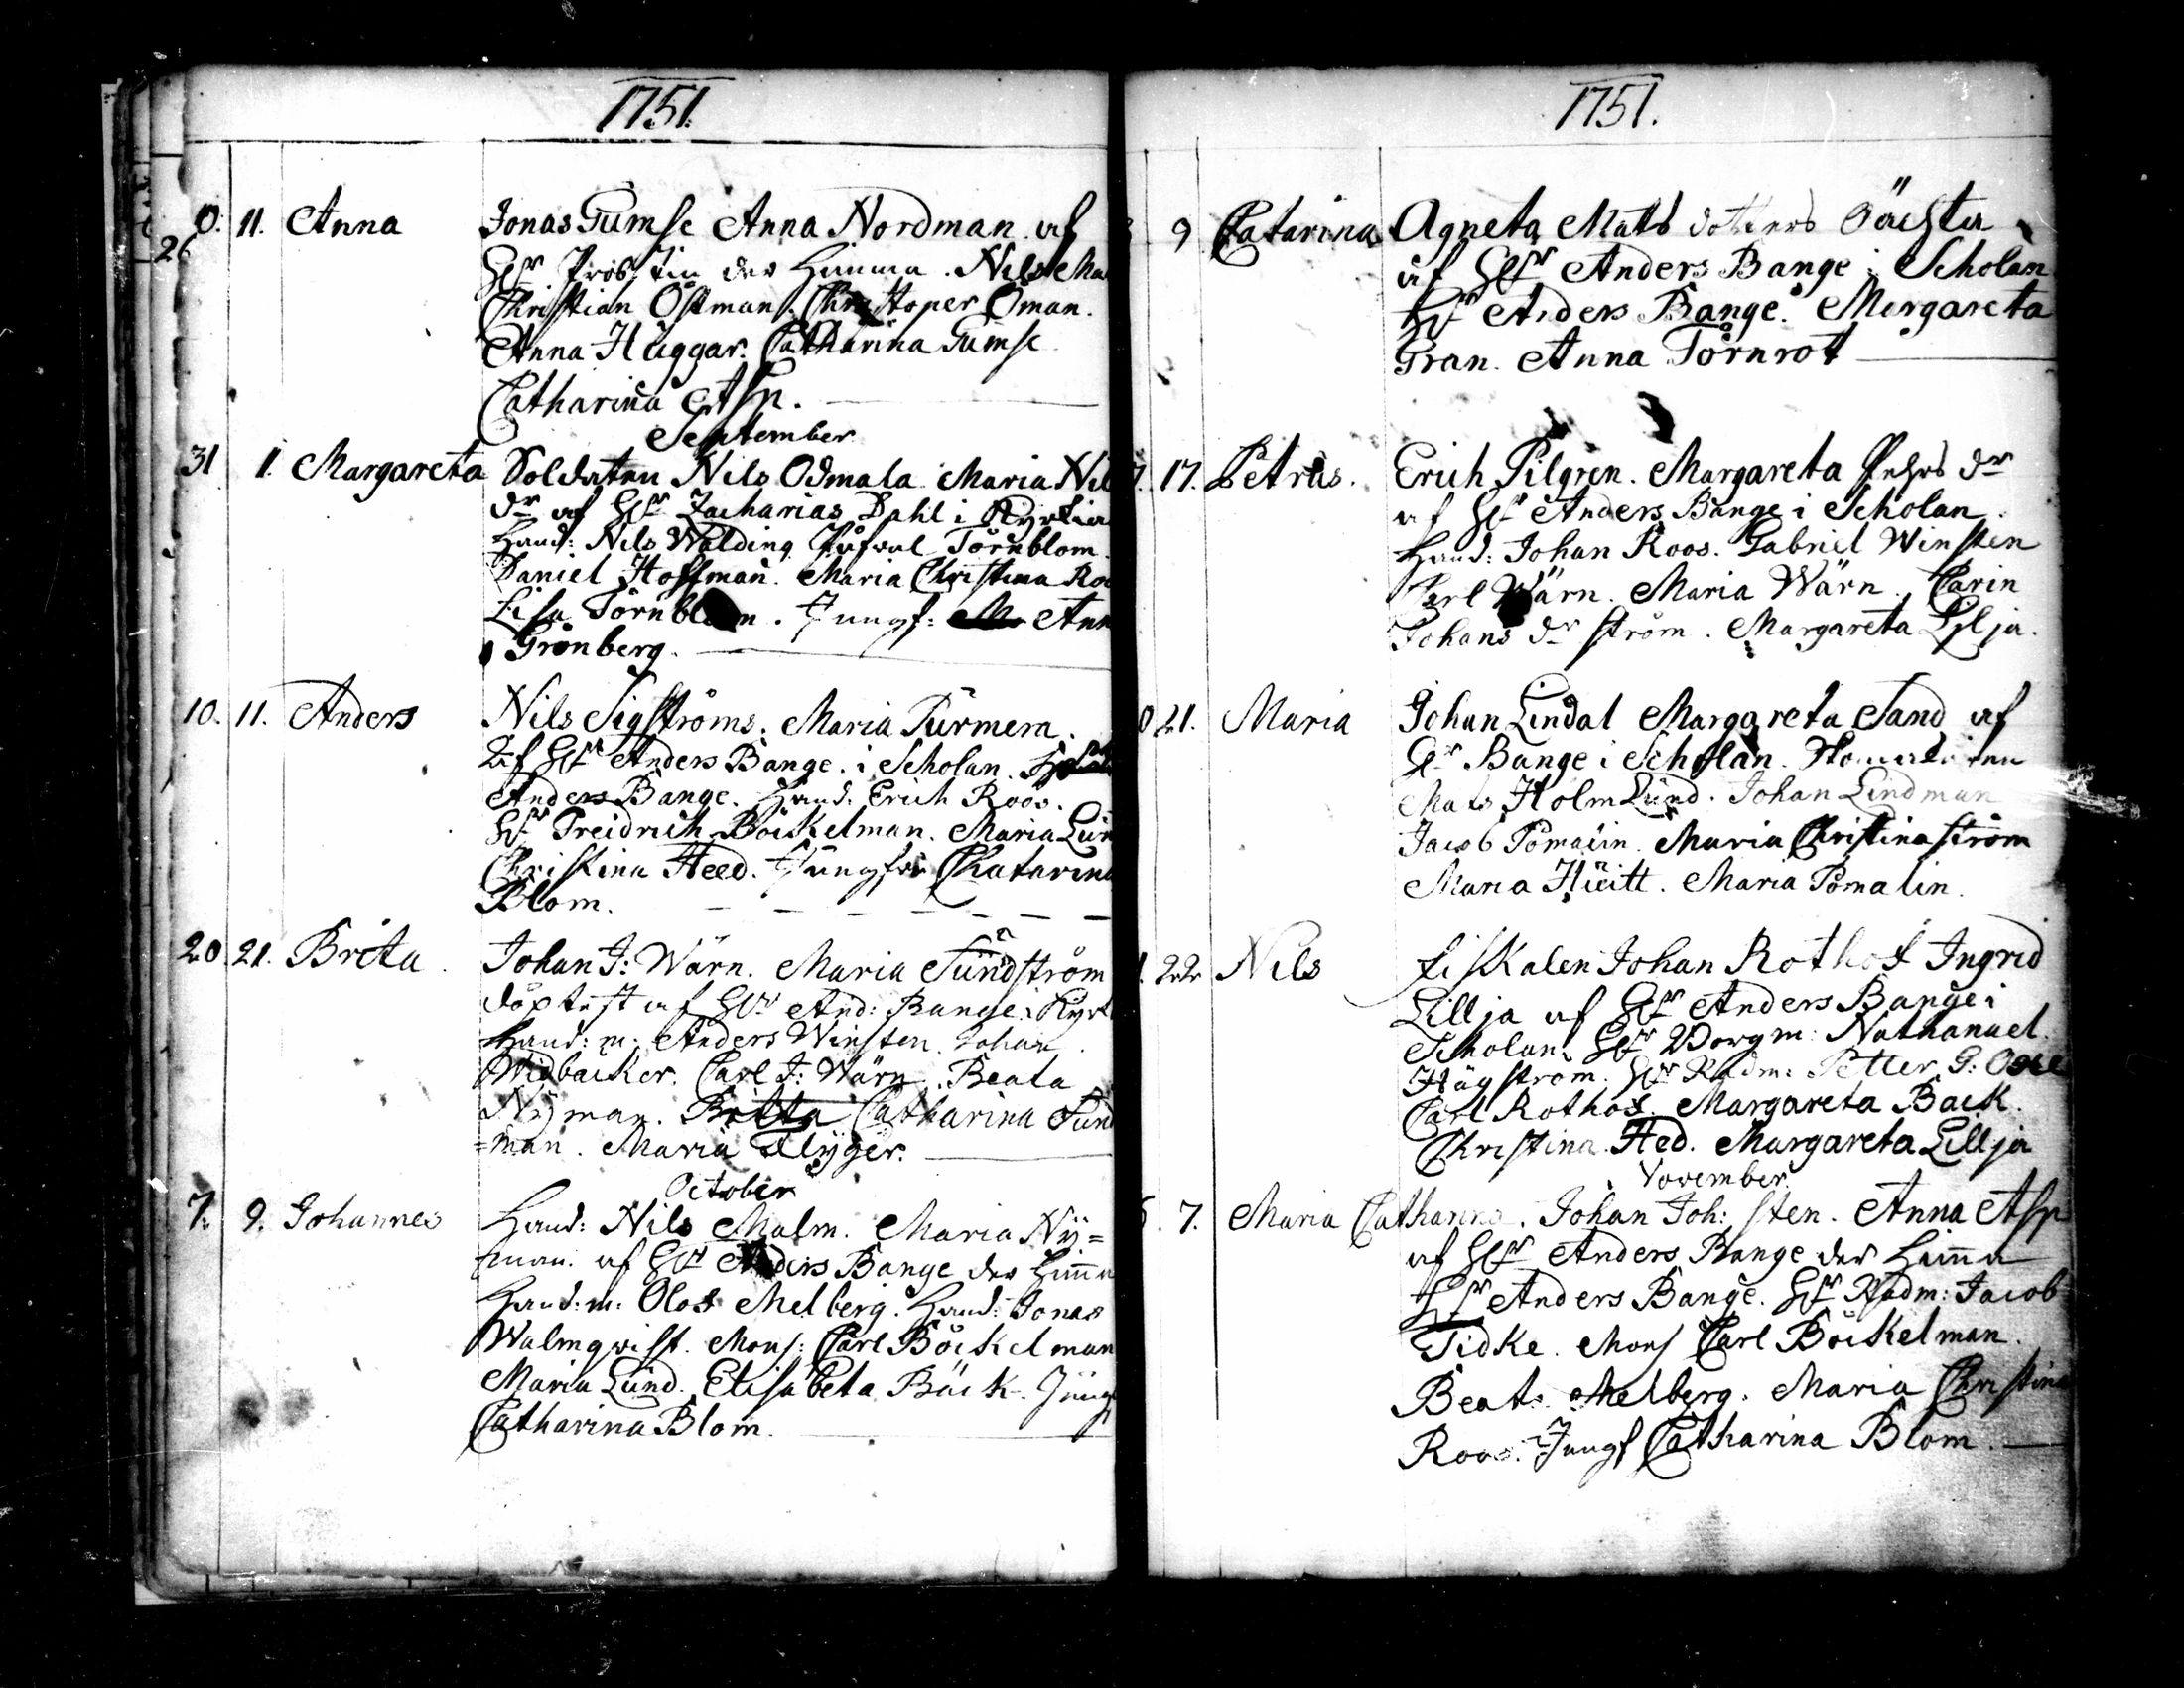 1751.
10. 11. Anna Jonas Tumse Anna Nordman af
26
H:r Probstin der Hemma. Nils Ma
Christian Östman. Christoper Öman.
Anna Huggar. Catharina Tumse
Catharina Asp.
September
31 1. Margareta Soldaten Nils Odmala Maria Nil
d:r af H:r Zacharias Dahl i Kyrkia
Hand: Nils Walding Törnblom.
Daniel Hoffman. Maria Christina Ro
Lisa Törnblom. Jungf: Ann
Grönberg.
10. 11. Anders Nils Sigströms. Maria Turmera.
af H:r Anders Bange. i Scholan.
Anders Bange. Hand: Erich Roos.
H:r Freidrich Böckelman. Maria Lun
Christina Heed. Jungfr Chatarina
Blom.
20. 21. Brita Johan J: Wärn. Maria Sundström
döptest af H:r And: Bange i Kyrk
Hand: m: Anders Winsten. Johan
Widbacker. Carl J: Wärn. Beata
Nyman. Britta Catharina Sund
=man. Maria Flyger.
October
7. 9. Johannes Hand: Nils Malm. Maria Nÿ=
man. af H:r Anders Bange der Hemma
Hand: m: Olof Melberg. Hand: Jonas
Walmqwist. Mons: Carl Böckelman
Maria Lund. Elisabeta Bäck. Jungf
Catharina Blom.
1751.
9 Catarina Agneta Mats dotters Oächta
af H:r Anders Bange i Scholan
H:r Anders Bange. Margareta
Gran. Anna Törnrot
17. Petrus. Erich Pilgren. Margareta Pehrs d:r
af H:r Anders Bange i Scholan.
Hand: Johan Roos. Gabriel Winsten
Carl Wärn. Maria Wärn. Carin
Johans d:r ström. Margareta Lilja.
21. Maria Johan Lindal Margareta Sand af
H:r Bange i Scholan.
Mats Holm Lund. Johan Lindman
Jacob Pomalin. Maria Christina ström
Maria Huitt. Maria Pomalin.
22 Nils fiskalen Johan Rothof Ingrid
Lillja af H:r Anders Bange i
Scholan. H:r Borgm: Nathanael
Hägström. H:r Radm: Petter G:
Carl Rothof. Margareta Back.
Christina Hed. Margareta Lillja
November.
6. 7. Maria Catharina. Johan Joh: sten. Anna Asp
af H:r Anders Bange der Hemma
H:r Anders Bange. H:r Radm: Jacob
Tidke. Mons Carl Böckelman.
Beat: Melberg. Maria Christina
Roos. Jungf Catharina Blom.